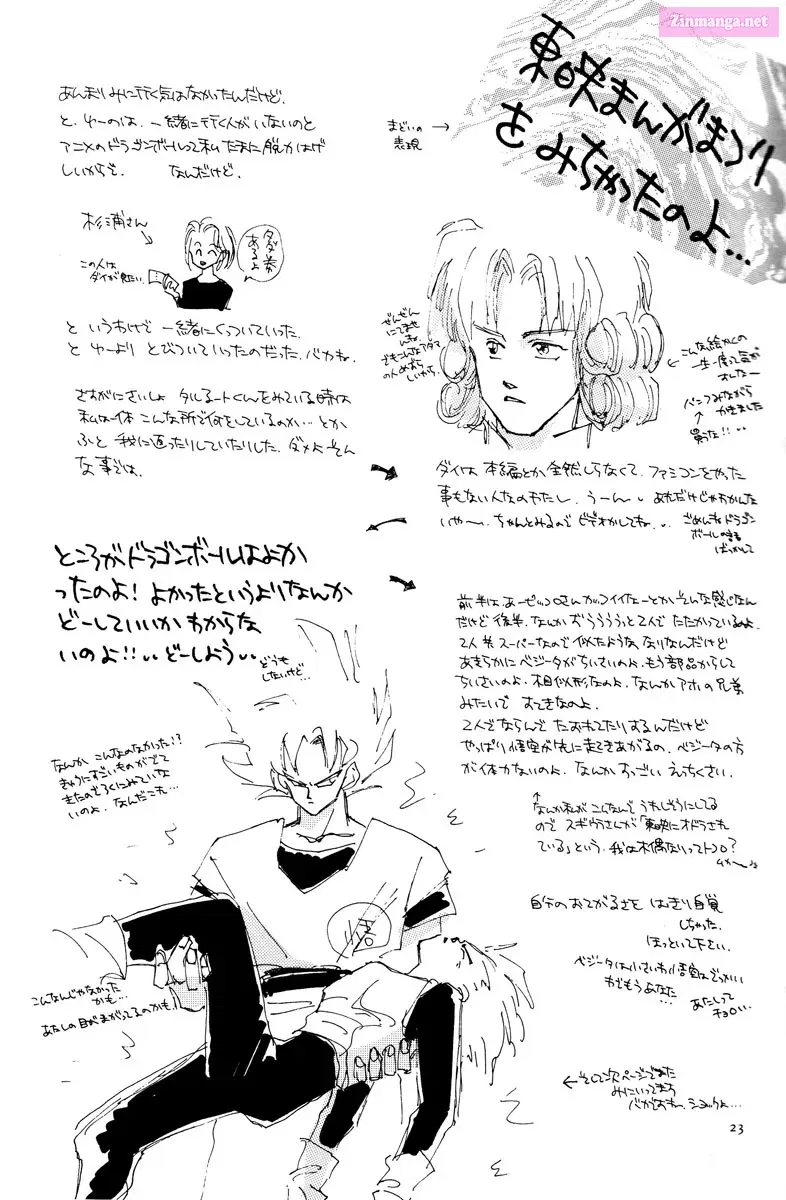 Zinmanga.net
東映まんがまつり
をみちゃったのよ…
まどいの
表現
あんまりみに行く気はなかったんだけど、
と、ゆーのは、一緒に行く人がいないのと
アニメのドラゴンボールって私たまに脱力はげ
しいからで。なんだけど。
杉浦さん
この人は
ダイが見たい
タダ券
あるよ
というわけで一緒にくっついていった。
とゆーより とびついていったのだった。バカね。
さすがにさいしょ タルるートくんをみている時は
私は一体こんな所で何をしているのか…とか
ふと我に返ったりしていたりした。ダメよそん
な事では。
ぜんぜん
にてませ
んね。
でもこんなアタマ
の人めずら
しいわよ。
こんな絵かくの
一生一度って気が
パンフみながら
かきました
買った!!
ダイは本編とか全然しらなくて、ファミコンをやった
事もない人なのでわたし、うーん、あれだけじゃわかんな
いやー、ちゃんとみるのでビデオかしてね。
ごめんねドラゴン
ボールのまる
ばっかして
ところがドラゴンボールはよか
ったのよ！よかったというよりなんか
どーしていいかわからな
いのよ!!‥どーしよう‥
どうも
しないけど…
前半はあーピッコロさんがカワイイなーとかそんな感じなん
だけど後半、なんかおうううっと2人でたたかっているのよ。
2人共スーパーなので似たようななりなんだけど
あきらかにベジータがちいさいのよ。もう部品からして
ちいさいのよ。相似形なのよ。なんかアホの兄弟
みたいで すてきなのよ。
2人でならんで たおれてたりするんだけど
やっぱり悟空が先に起きあがるの。ベジータの方
が体力ないのよ。なんか すっごい えっちくさい。
なんか私がこんなんで うれしそうにしてる
ので スギウラさんが「東映にオドらされ
ている」という。我は木偶なりってトコロ？
なんか こんなのなかった!?
きゅうにすごいものがでて
きたのでろくにみていな
いのよ。なんだこれ…
自分のおてがるさを はっきり自覚
しちゃった。
ほっといて下さい。
ベジータは小さいわ悟空はでっかい
わでもうあなた…
あたしって
チョロい…
こんなんじゃなかった
かも…
あたしの目がまがってるのかも
そして次ページでまた
みにいってます
バカですねー。ショックよ…
23